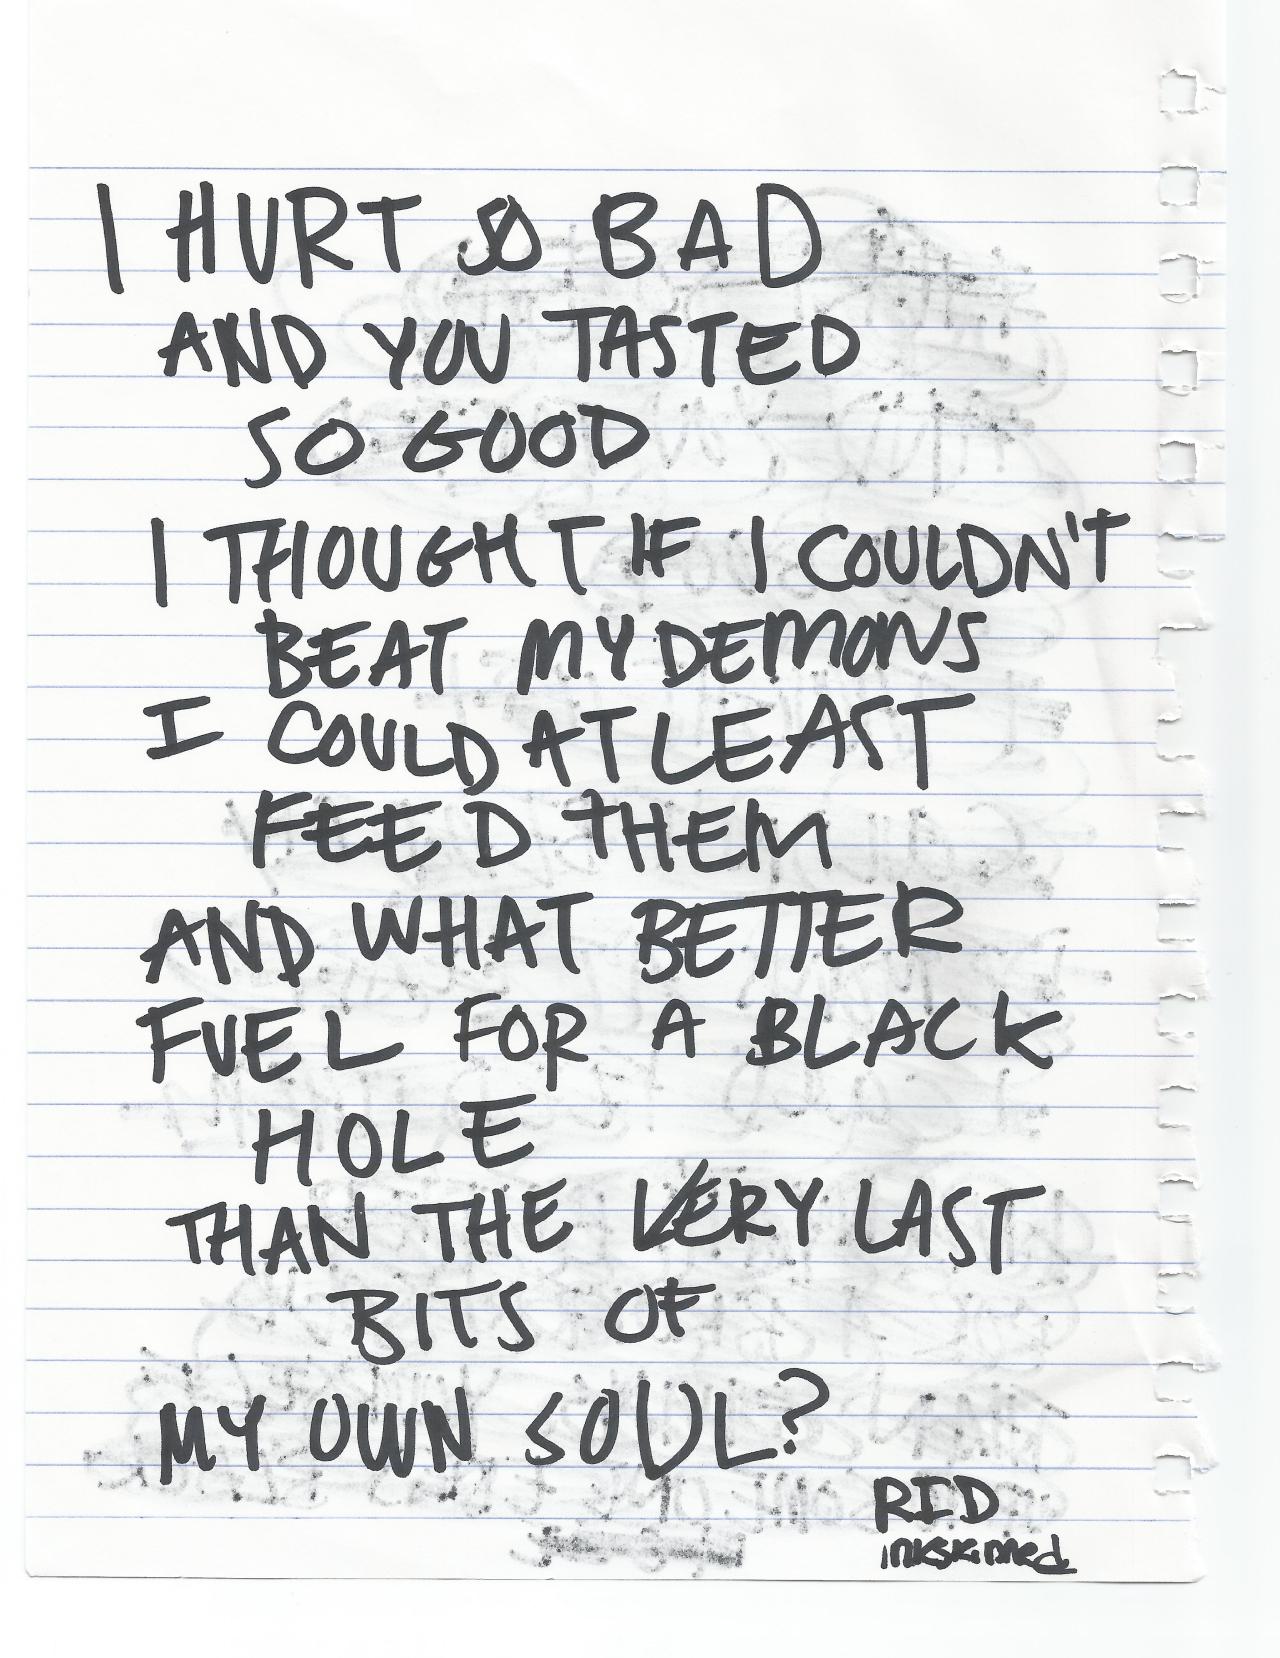 I HURT SO BAD
AND YOU TASTED
SO GOOD
I THOUGHT IF I COULDN'T
BEAT MY DEMONS
I COULD AT LEAST
FEED THEM
AND WHAT BETTER
FUEL FOR A BLACK
HOLE
THAN THE VERY LAST
BITS OF
MY OWN SOUL?
RID
inkskinned